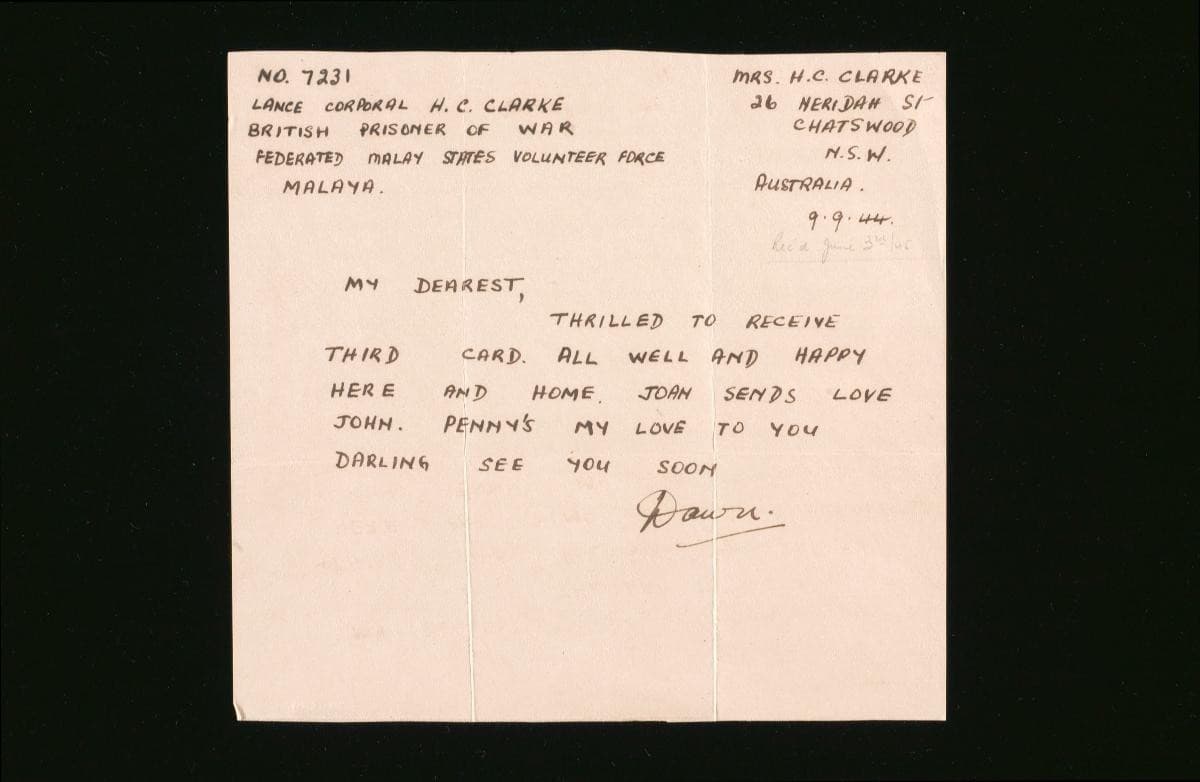 NO. 7231
LANCE CORPORAL H. C. CLARKE
BRITISH PRISONER OF WAR
FEDERATED MALAY STATES VOLUNTEER FORCE
MALAYA.
MRS. H.C. CLARKE
26 NERIDAH ST
CHATSWOOD
N.S.W.
AUSTRALIA.
9.9.44.
Rec'd June 3rd/45
MY DEAREST,
THRILLED TO RECEIVE
THIRD CARD. ALL WELL AND HAPPY
HERE AND HOME. JOAN SENDS LOVE
JOHN. PENNY'S MY LOVE TO YOU
DARLING SEE YOU SOON
Dawn.